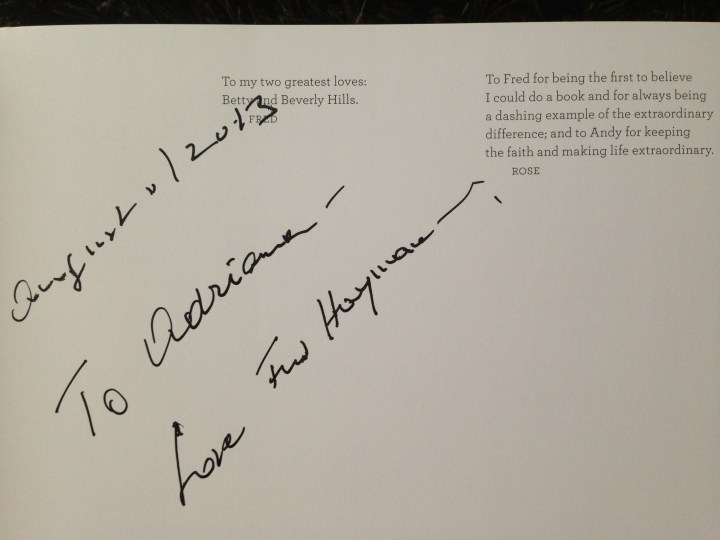 To my two greatest loves:
Betty and Beverly Hills.
FRED
To Fred for being the first to believe
I could do a book and for always being
a dashing example of the extraordinary
difference; and to Andy for keeping
the faith and making life extraordinary.
ROSE
August 2013
To Adriana
Love Fred Hayman